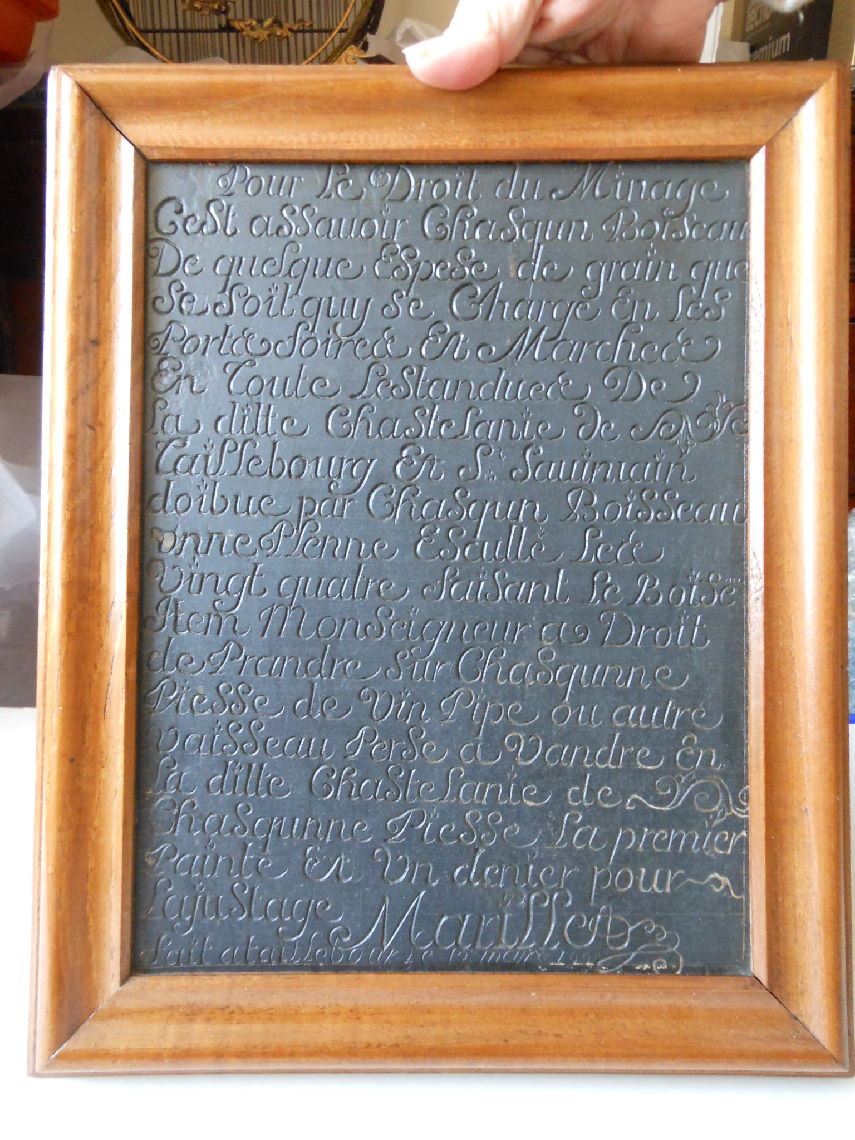 emium
Pour Le Droit du Minage
Cest assauoir Chasqun Boiseau
De quelque Espese de grain que
Se Soit quy se Charge En Les
Porte& foire& Et Marche&
En Toute Lestandue& De
La ditte Chastelanie de
Taillebourg Et St Sauinuain
doibue par Chasqun Boisseau
vnne Plenne Esculle Le&
Vingt quatre faisant Le Boise
Item Monseigneur a Droit
de Prandre sur Chasqunne
Piesse de Vin Pipe ou autre
vaisseau Perse a Vandre En
La ditte Chastelanie de
Chasqunne Piesse La premier
Painte Et Un denier pour
Lajustage Marillet
fait a taillebourg le 12 mars